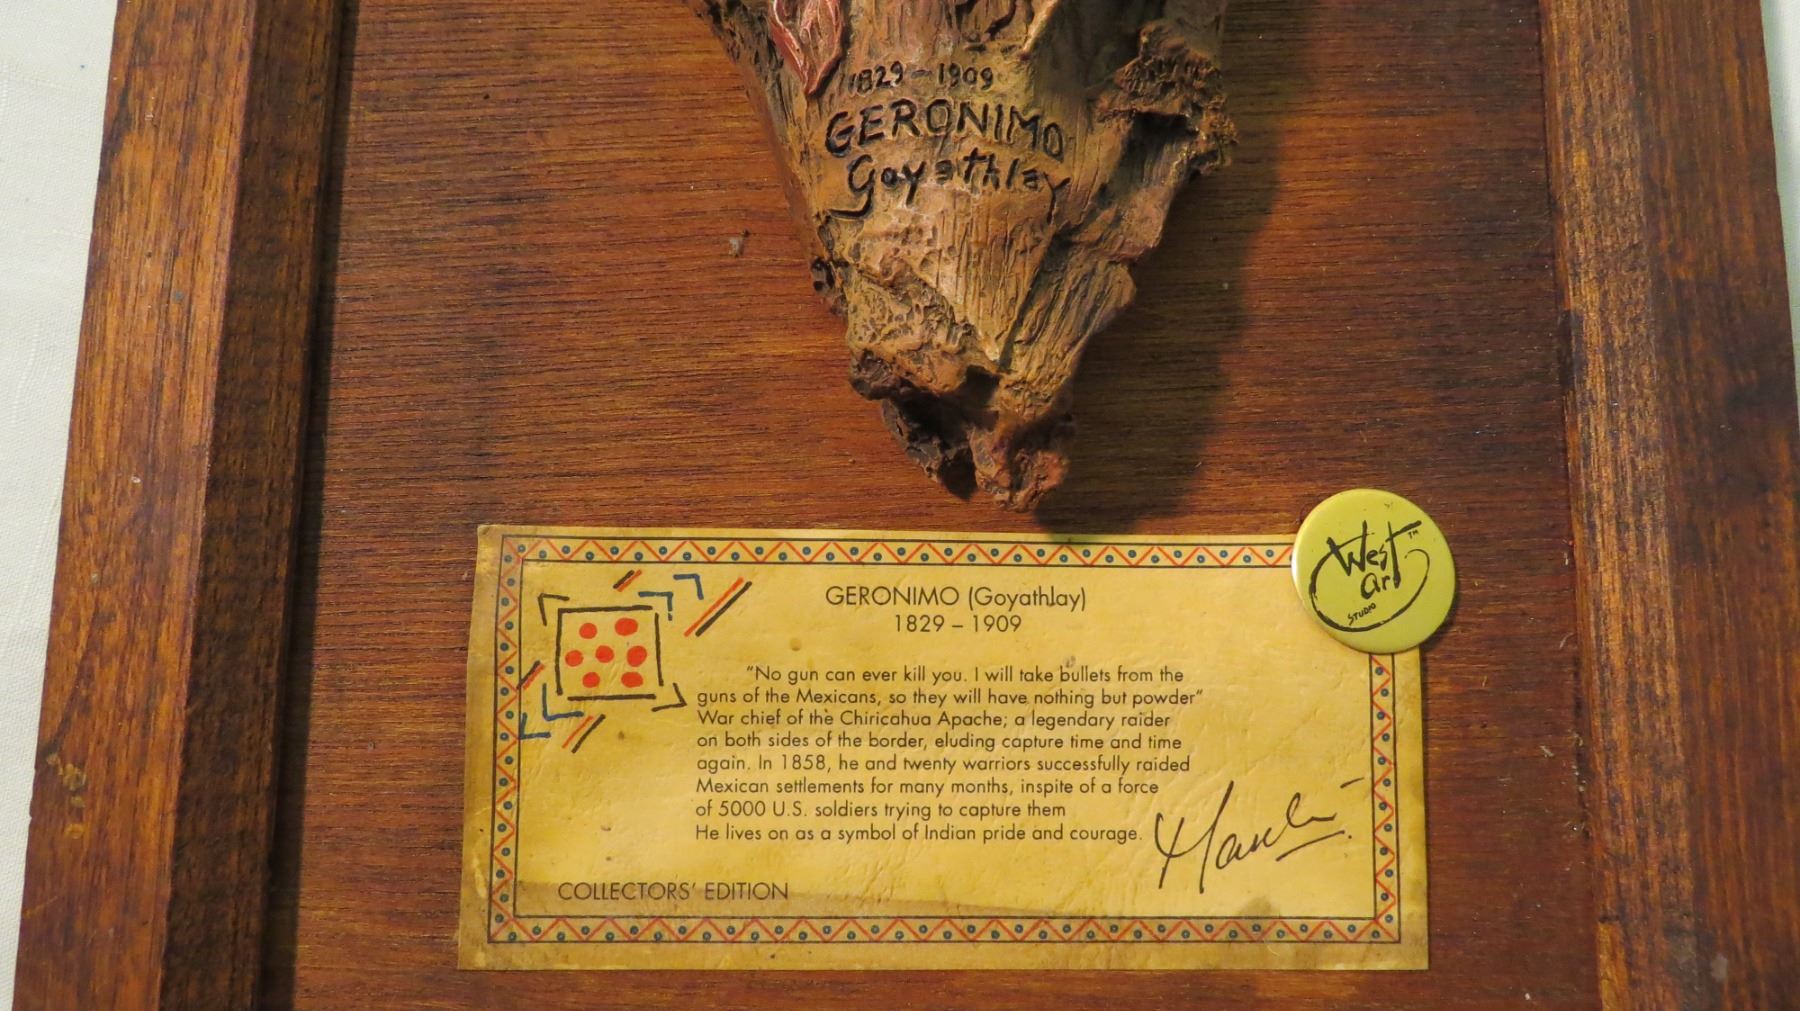 1829 - 1909
GERONIMO
Goyathlay
West
art
STUDIO
TM
GERONIMO (Goyathlay)
1829 – 1909
"No gun can ever kill you. I will take bullets from the
guns of the Mexicans, so they will have nothing but powder"
War chief of the Chiricahua Apache; a legendary raider
on both sides of the border, eluding capture time and time
again. In 1858, he and twenty warriors successfully raided
Mexican settlements for many months, inspite of a force
of 5000 U.S. soldiers trying to capture them
He lives on as a symbol of Indian pride and courage.
COLLECTORS' EDITION